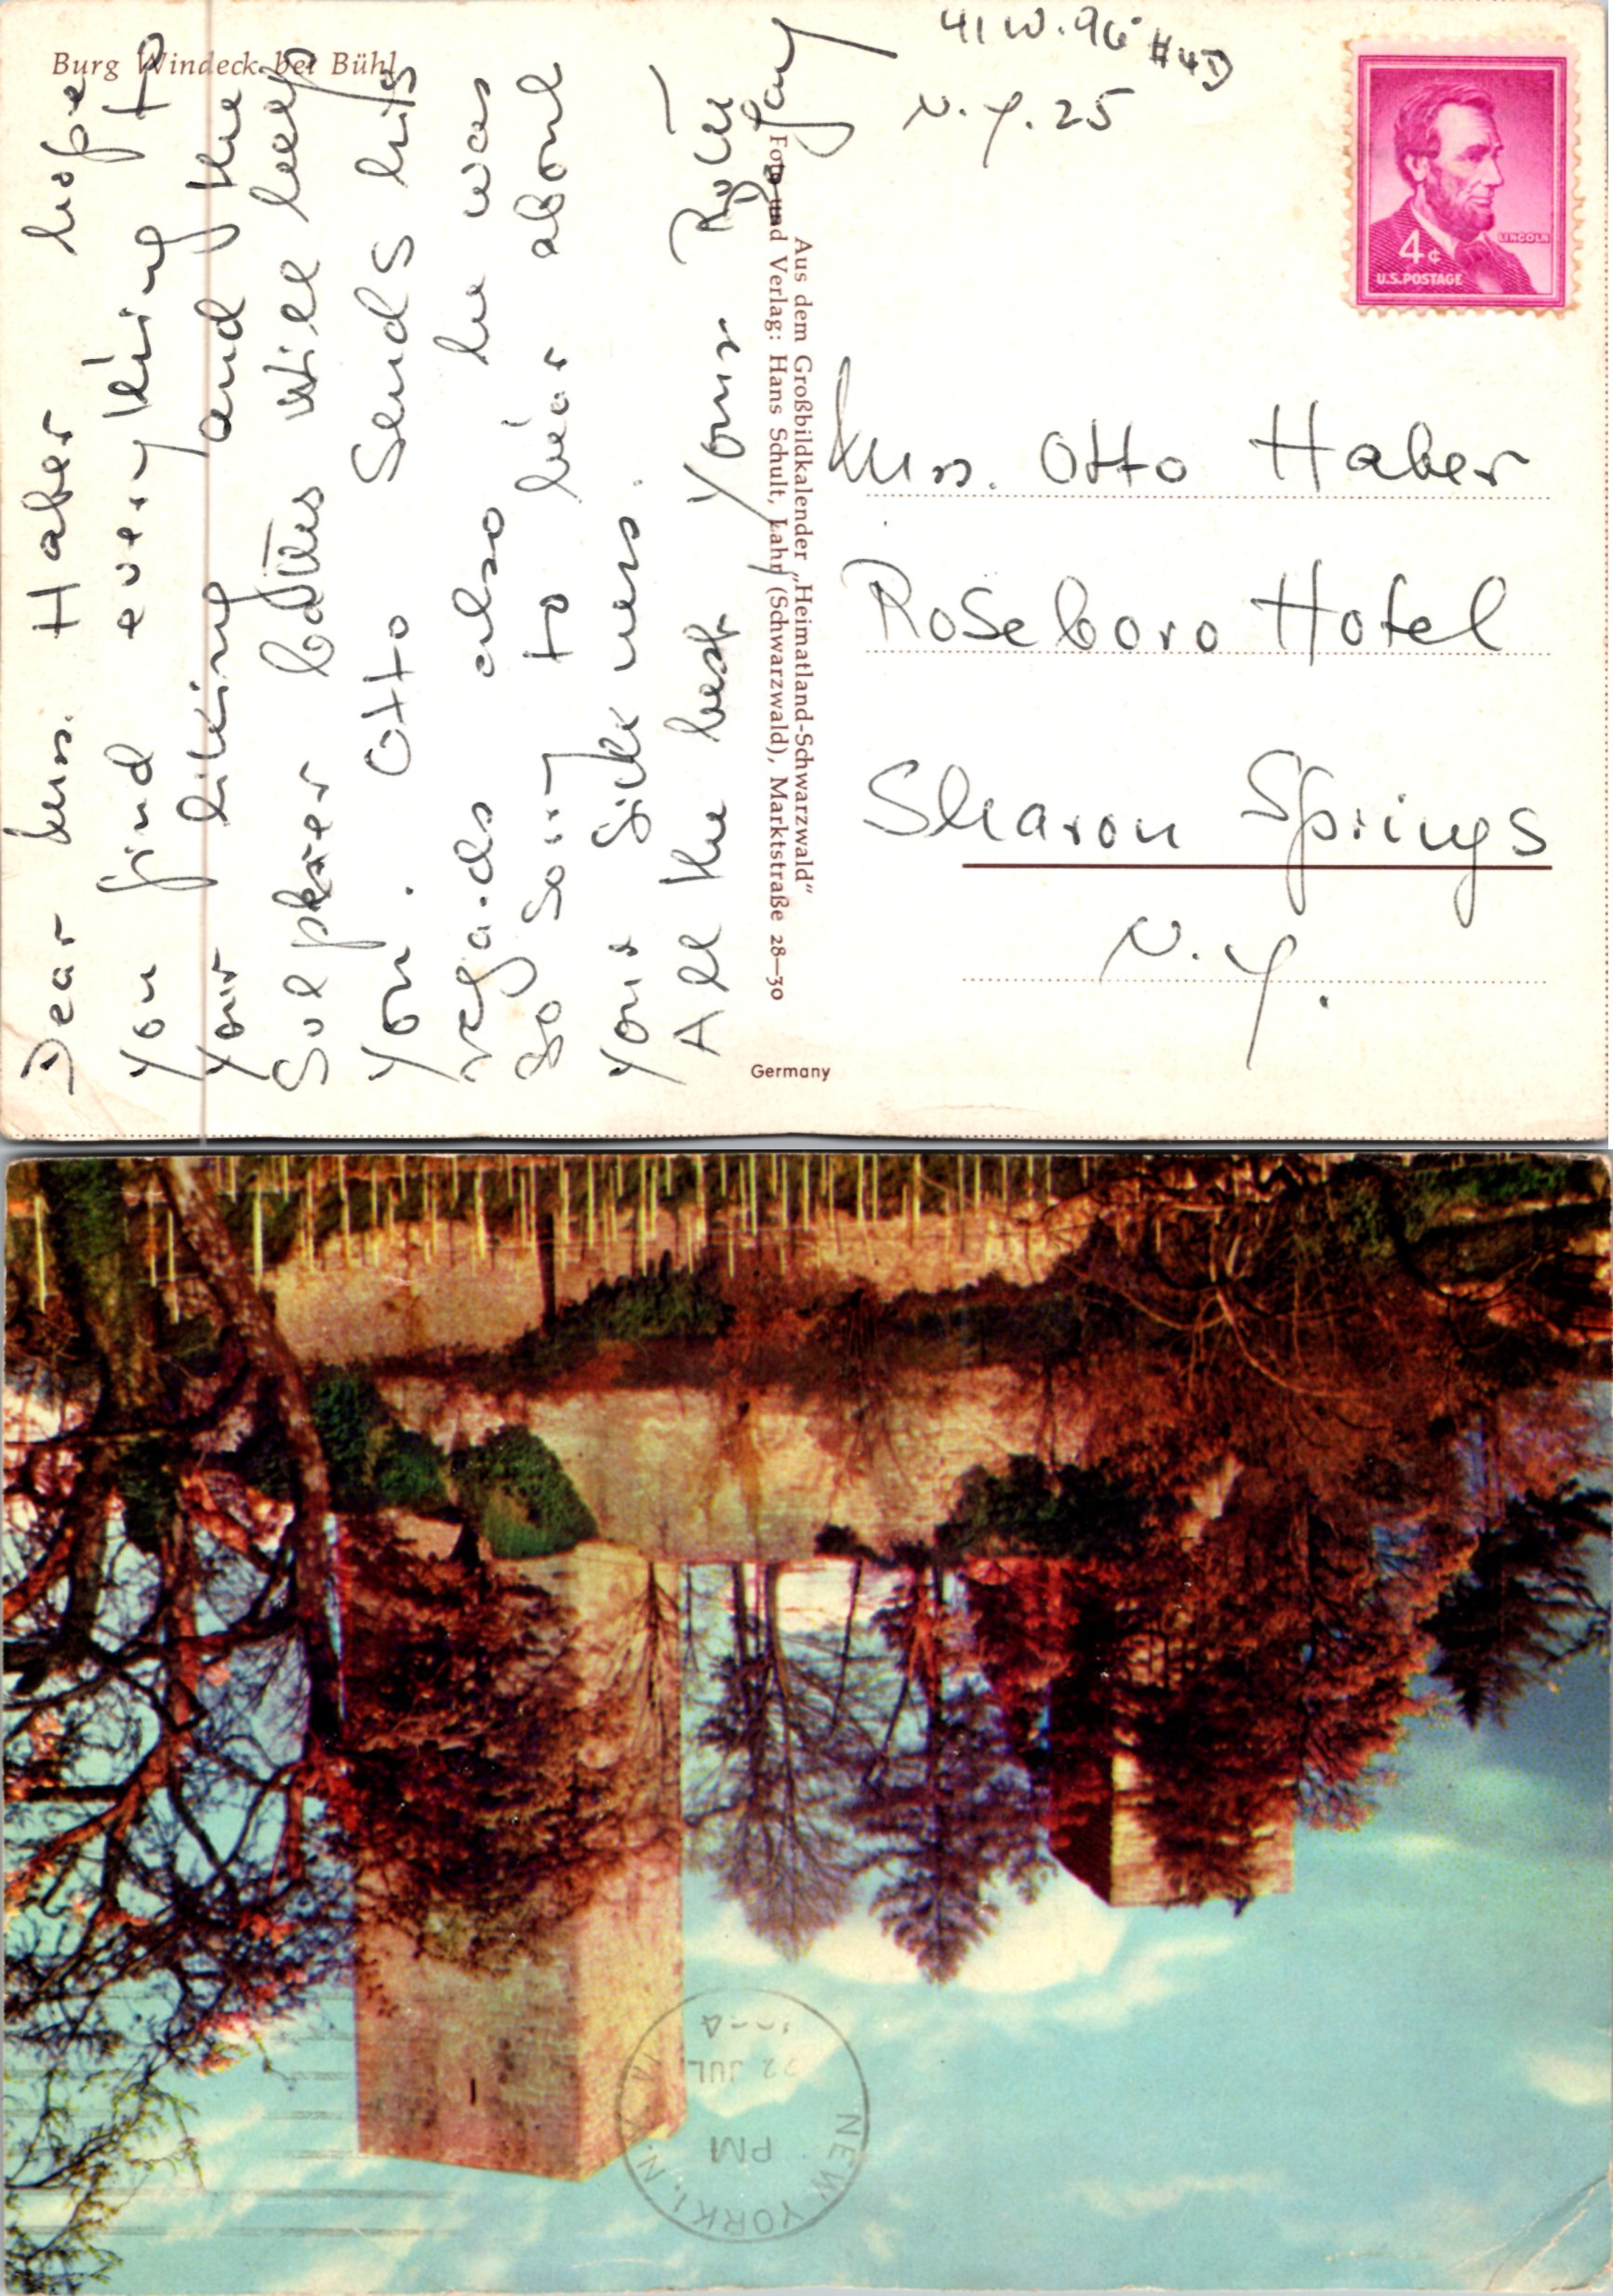 Burg Windeck bei Bühl
Dear Mrs. Haber hope
you find everything to
your liking and the
Sulpher baths will help
you. Otto sends his
regards also he was
so sorry to hear about
your sickness.
All the best Your Ruth
41 W. 96 #4D
N.Y. 25
LINCOLN
4¢
U.S. POSTAGE
Aus dem Großbildkalender „Heimatland-Schwarzwald“
Foto und Verlag: Hans Schult, Lahr (Schwarzwald), Marktstraße 28—30
Germany
Mrs. Otto Haber
Roseboro Hotel
Sharon Springs
N.Y.
NEW YORK 1, N.Y.
PM
22 JUL